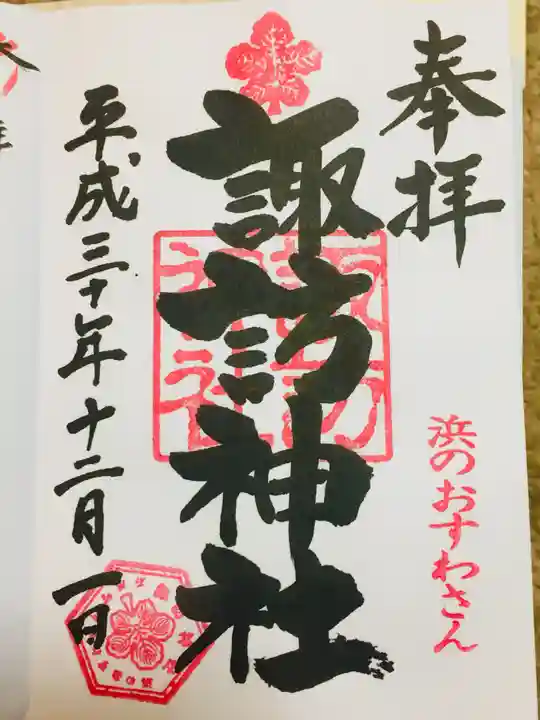 奉拝
浜のおすわさん
諏訪神社
諏訪
神社
平成三十年十二月一日